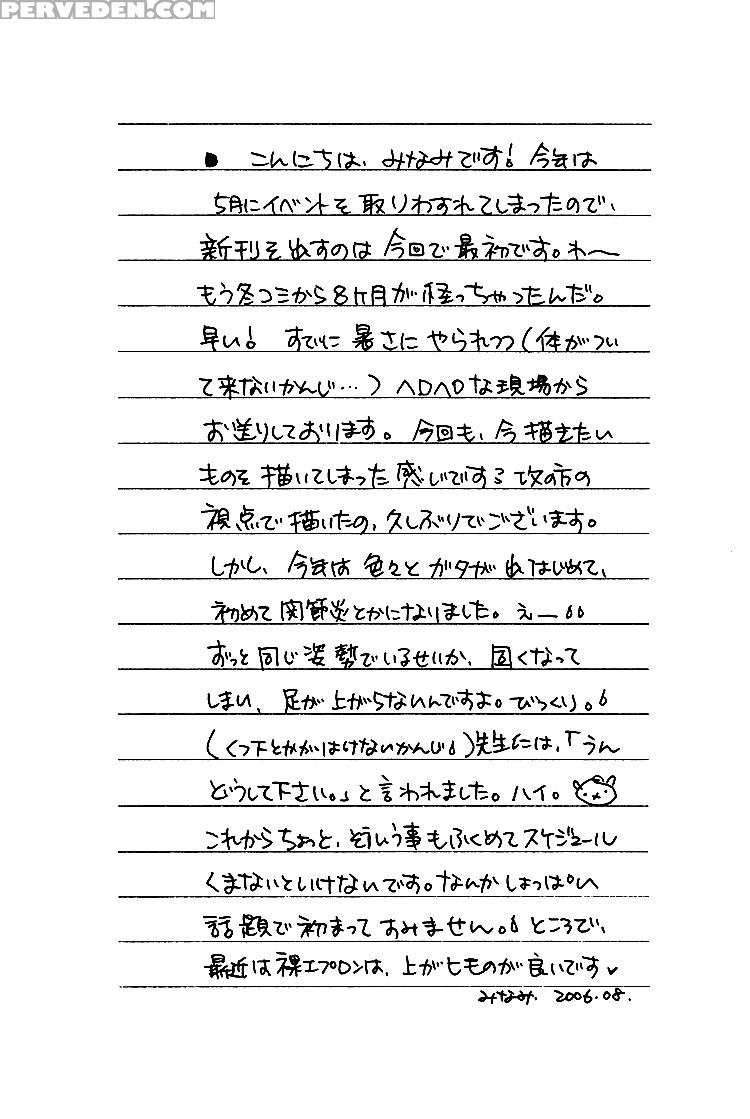 PERVEDEN.COM
● こんにちは、みなみです! 今年は
5月にイベントを取りわすれてしまったので、
新刊を出すのは今回で最初です。わ〜
もう冬コミから8ヶ月が経っちゃったんだ。
早い! すでに暑さにやられつつ(体がつい
て来ないかんじ…)ヘロヘロな現場から
お送りしております。今回も、今描きたい
ものを描いてしまった感じでする攻の方の
視点で描いたの、久しぶりでございます。
しかし、今年は色々とガタが出はじめて、
初めて関節炎とかになりました。えー
ずっと同じ姿勢でいるせいか、固くなって
しまい、足が上がらないんですよ。びっくり。
(くつ下とかがはけないかんじ)先生には、「うん
どうして下さい。」と言われました。ハイ。
これからちょっと、そういう事もふくめてスケジュール
くまないといけないです。なんかしょっぱい
話題で初まってすみません。ところで、
最近は裸エプロンは、上が七ものが良いです♥
みなみ. 2006.08.